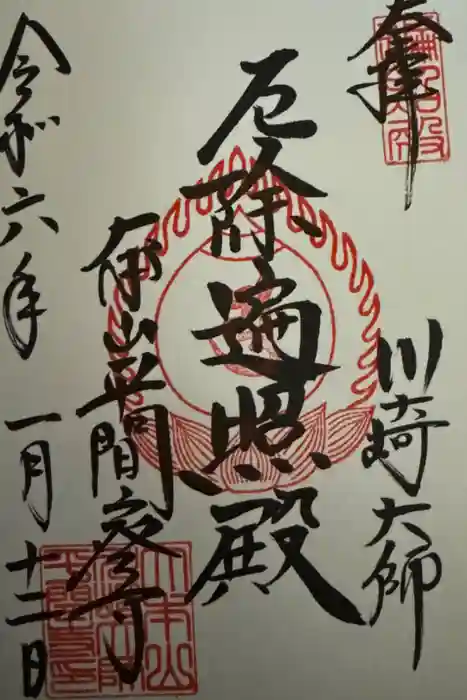 奉拝
川崎大師
厄除遍照殿
山平間密寺
令和六年一月十二日